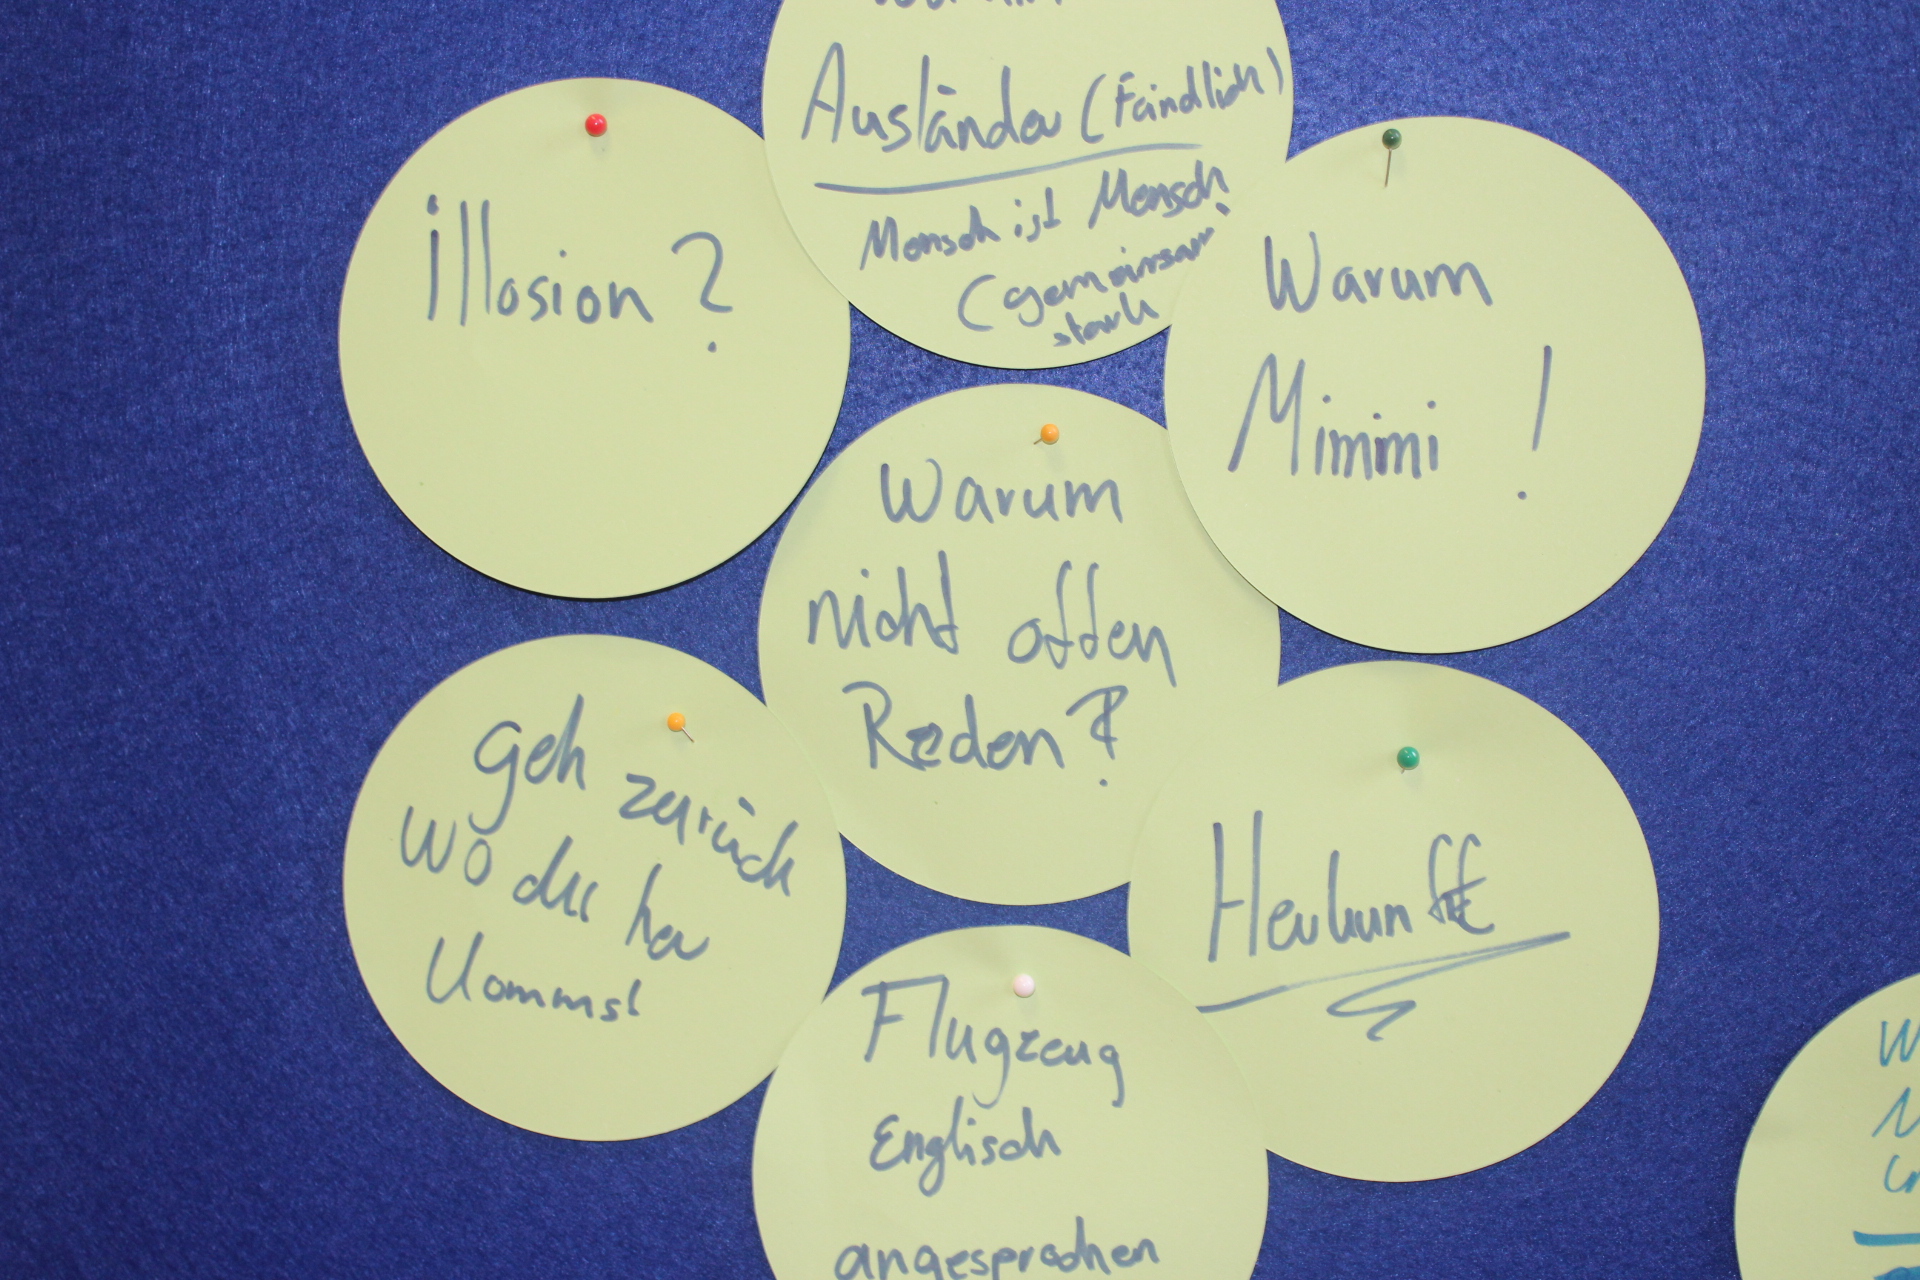 Ausländer (Feindlich)
Mensch ist Mensch
(gemeinsam
stark
illosion ?
Warum
Mimimi !
Warum
nicht offen
Reden ?
geh zurück
wo du her
kommst
Herkunft
Flugzeug
Englisch
angesprochen